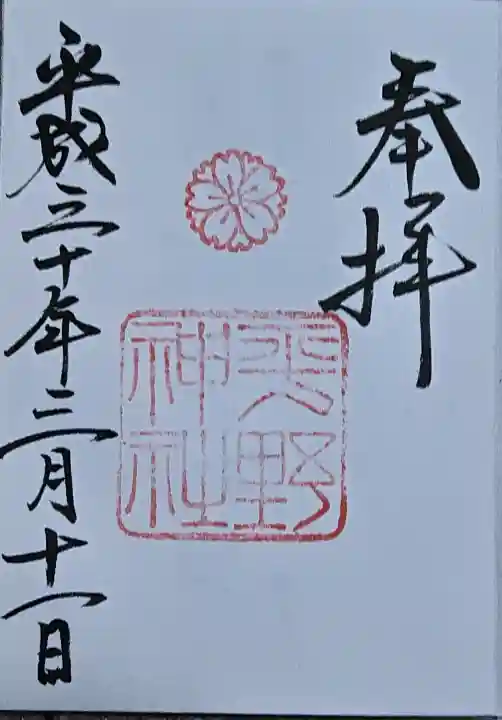 奉拝
平野
神社
平成三十年三月十一日